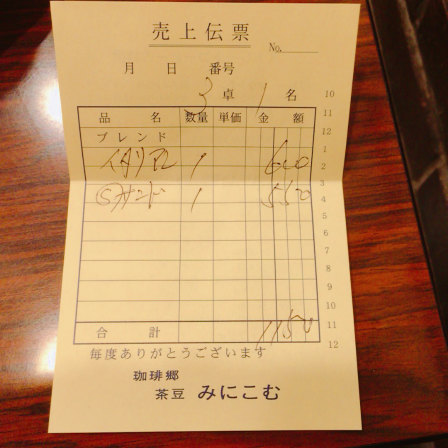 売上伝票
No.
月 日 番号
3 卓 1 名
品 名 数量 単価 金 額
ブレンド
イタリアン 1 600
Sサンド 1 550
合 計 1150
毎度ありがとうございます
珈琲郷
茶豆 みにこむ
10
11
12
1
2
3
4
5
6
7
8
9
10
11
12